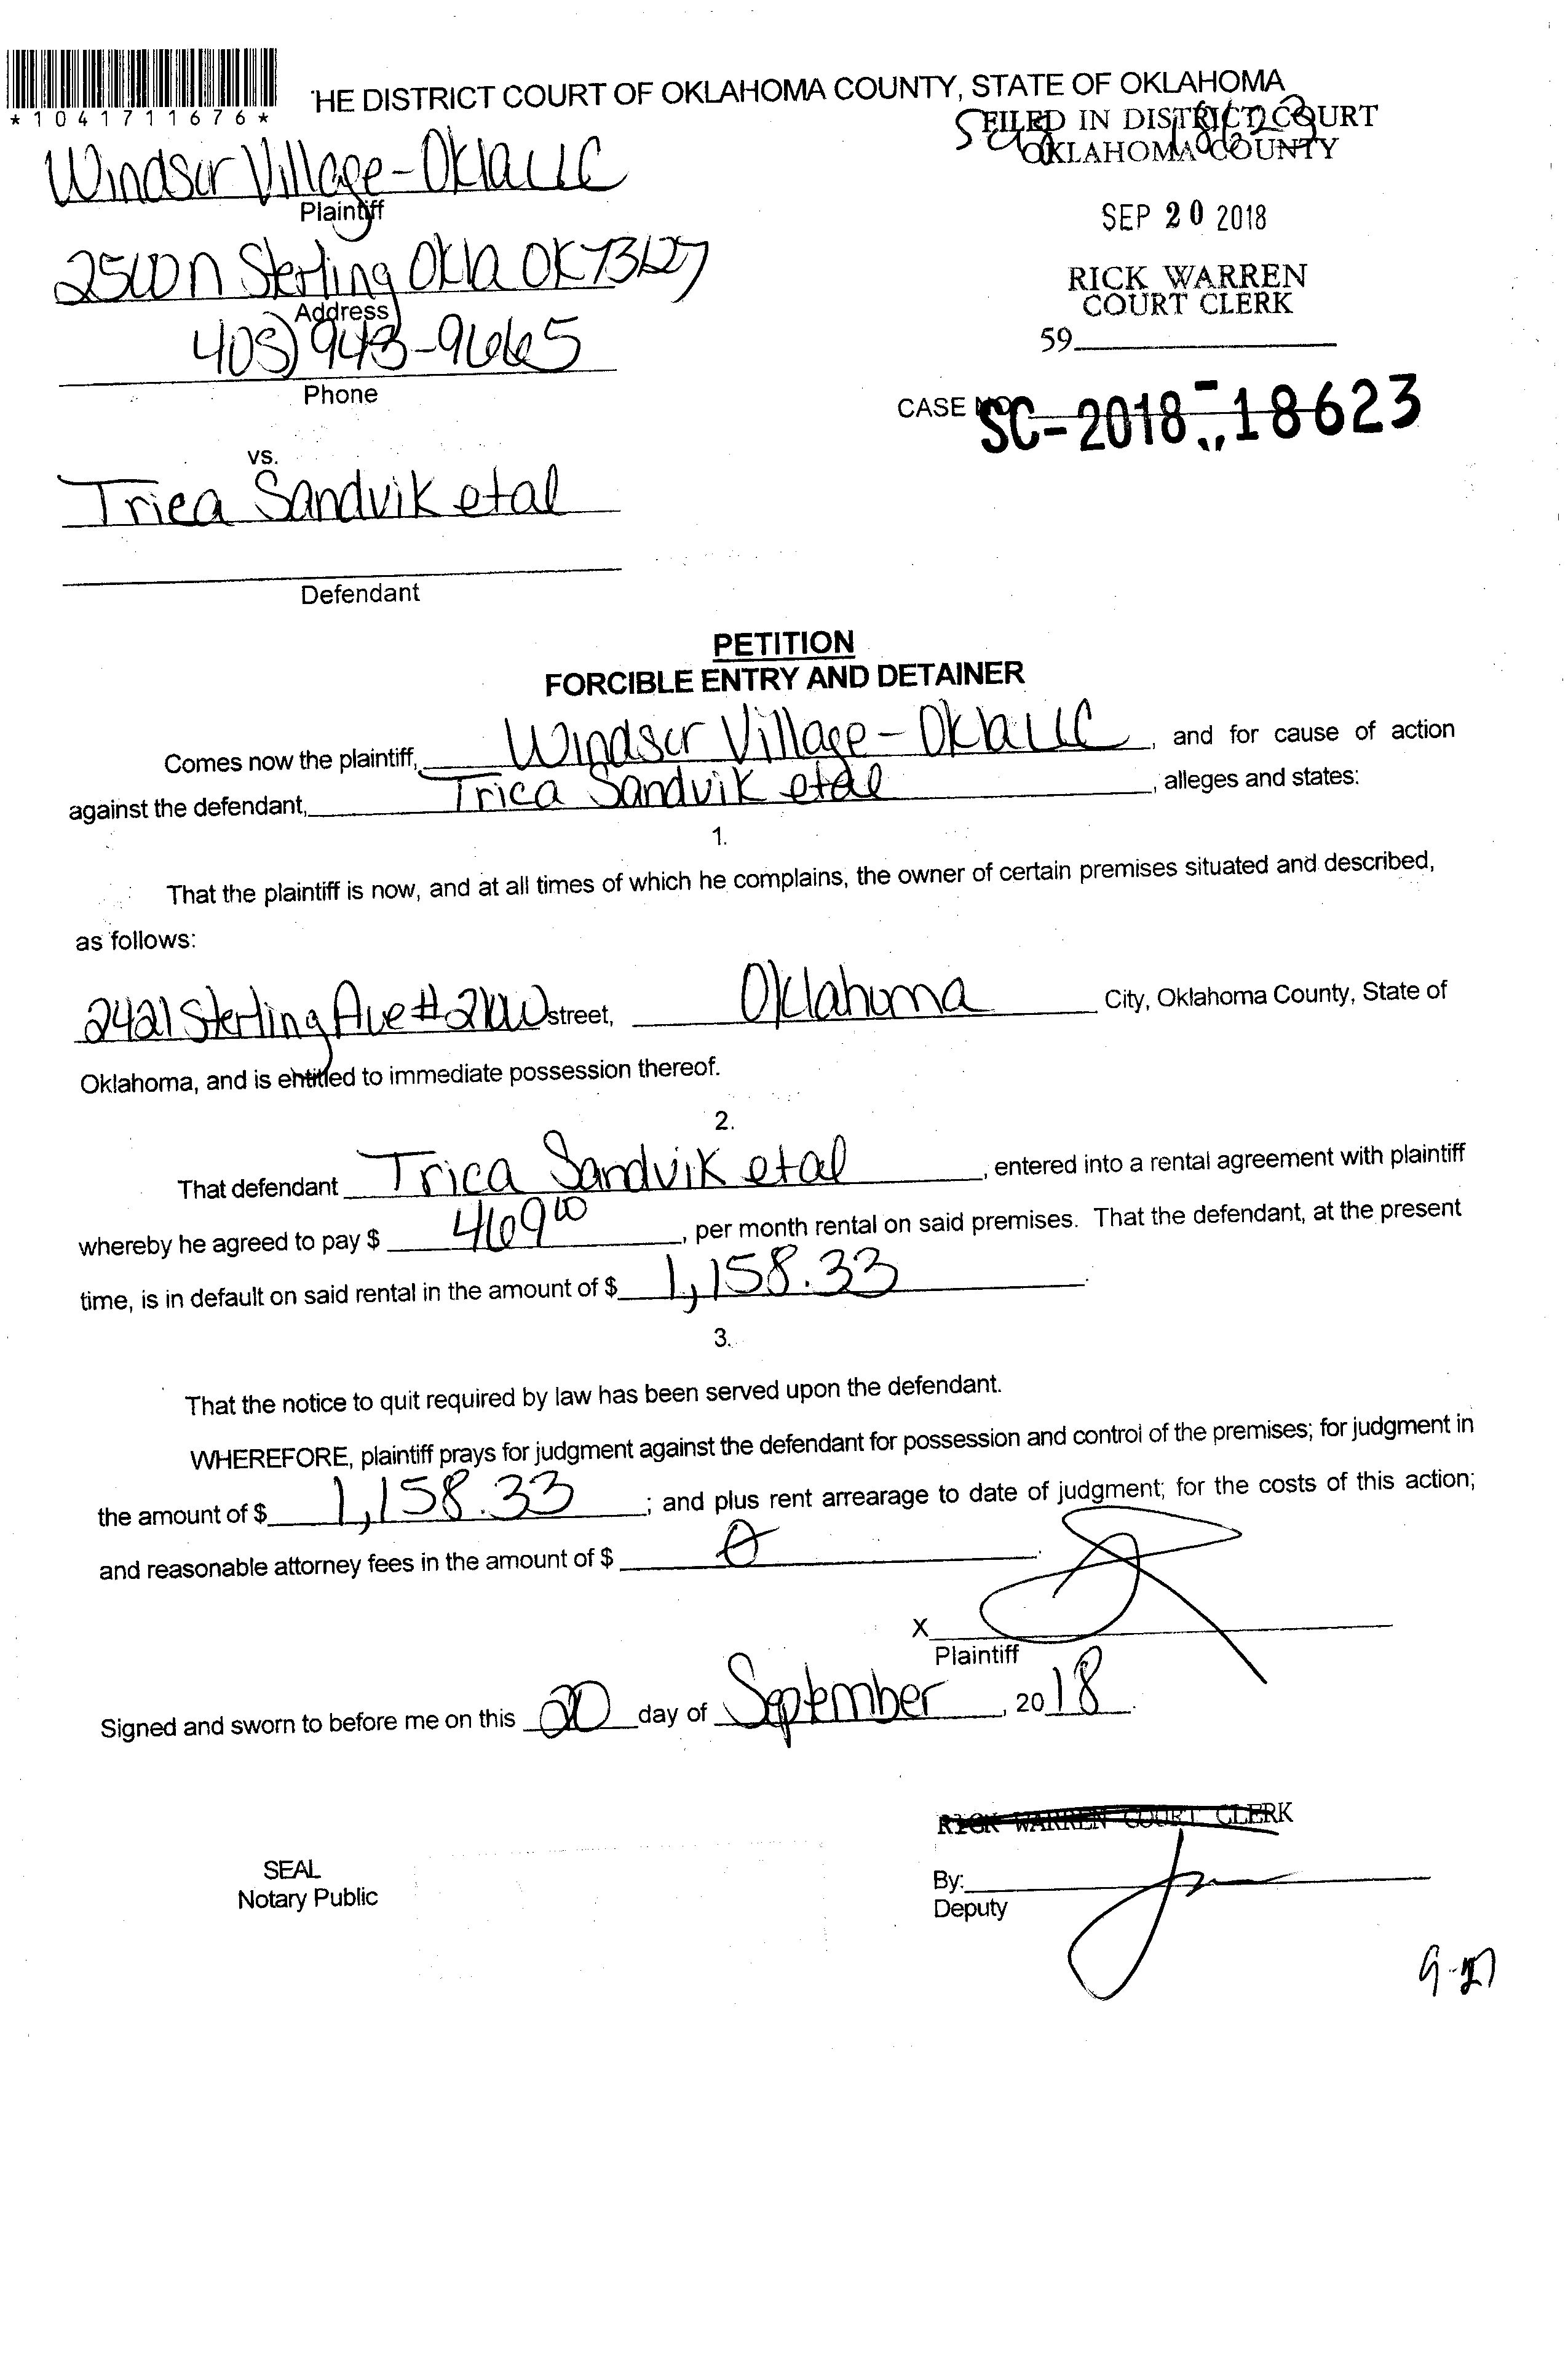 *1041711676*
HE DISTRICT COURT OF OKLAHOMA COUNTY, STATE OF OKLAHOMA
FILED IN DISTRICT COURT
OKLAHOMA COUNTY
Windsor Village-Okla LLC
Plaintiff
SEP 20 2018
2500 N Sterling Okla OK 73127
Address
RICK WARREN
COURT CLERK
405) 943-9665
Phone
59
CASE NO.
SC-2018-18623
vs.
Trica Sandvik etal
Defendant
PETITION
FORCIBLE ENTRY AND DETAINER
Comes now the plaintiff, Windsor Village-Okla LLC, and for cause of action
against the defendant, Trica Sandvik etal, alleges and states:
1.
That the plaintiff is now, and at all times of which he complains, the owner of certain premises situated and described,
as follows:
2421 Sterling Ave # street, Oklahoma City, Oklahoma County, State of
Oklahoma, and is entitled to immediate possession thereof.
2.
That defendant Trica Sandvik etal, entered into a rental agreement with plaintiff
whereby he agreed to pay $ 469 00, per month rental on said premises. That the defendant, at the present
time, is in default on said rental in the amount of $ 1,158.33.
3.
That the notice to quit required by law has been served upon the defendant.
WHEREFORE, plaintiff prays for judgment against the defendant for possession and control of the premises; for judgment in
the amount of $ 1,158.33; and plus rent arrearage to date of judgment; for the costs of this action;
and reasonable attorney fees in the amount of $ 0.
X
Plaintiff
Signed and sworn to before me on this 20 day of September, 2018.
RICK WARREN COURT CLERK
SEAL
Notary Public
By:
Deputy
9-27